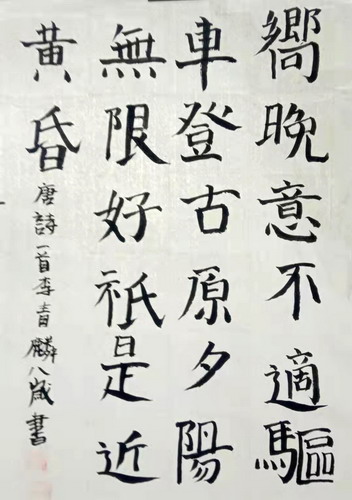 嚮晚意不適驅
車登古原夕陽
無限好祇是近
黃昏
唐詩一首李青麟八歲書